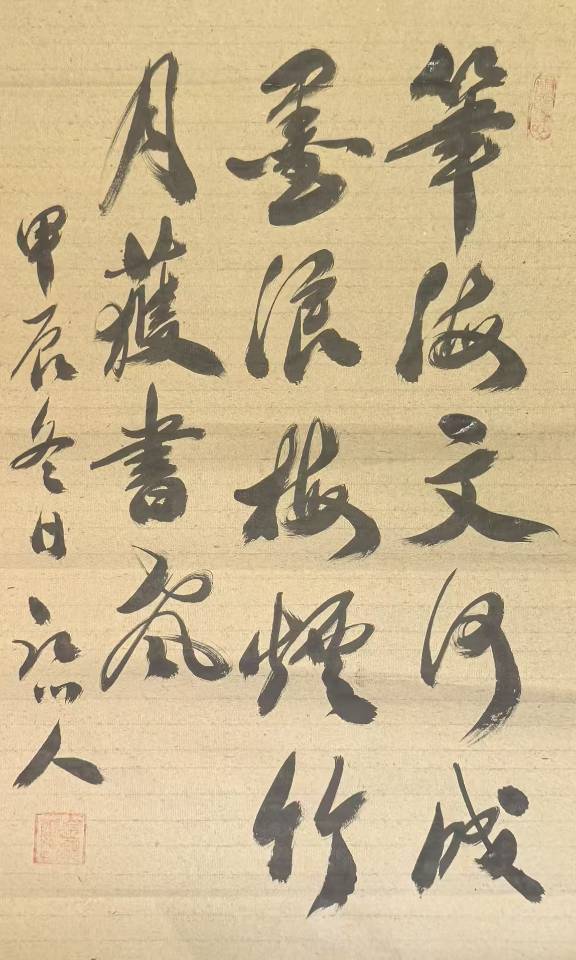 筆海文河成
墨浪梅煙竹
月護書窓
甲辰冬日 人